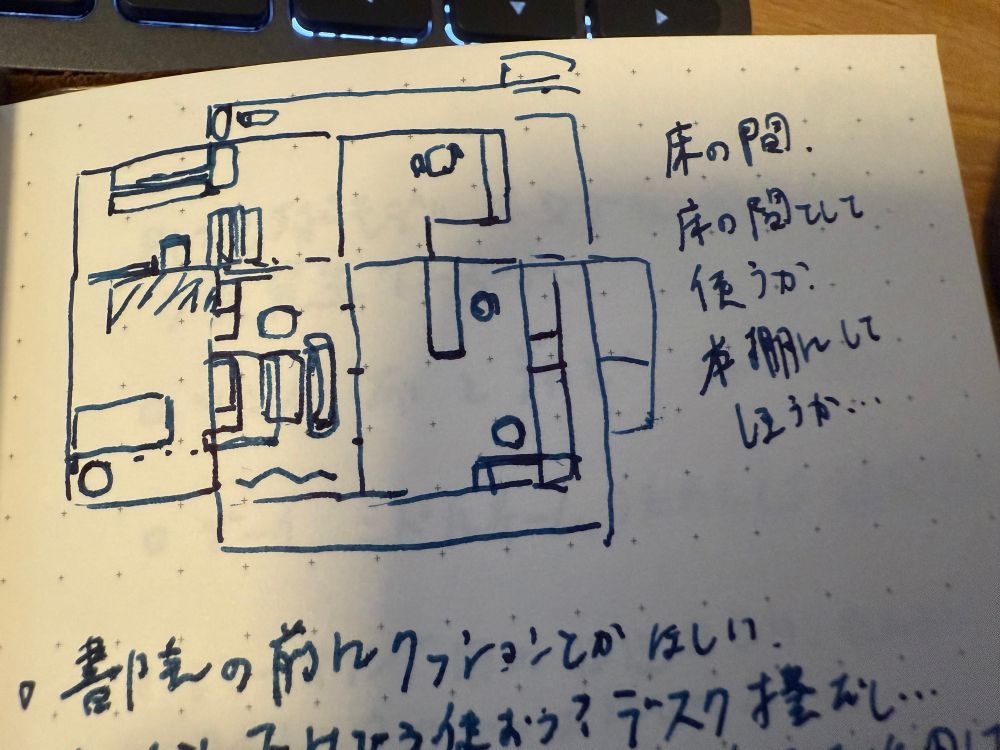 床の間.
床の間として
使うか.
本棚にして
しまうか…
の前にクッションとかほしい.
使おう?デスク